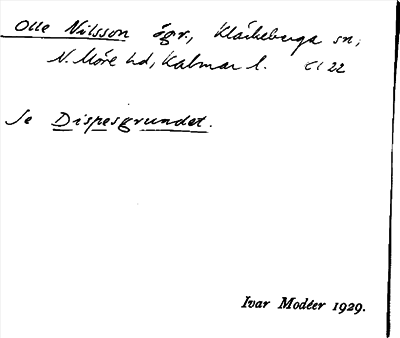 Olle Nilsson ögr., Kläckeberga sn,
N. Möre hd, Kalmar l. Cl 22
Se Dispesgrundet.
Ivar Modéer 1929.